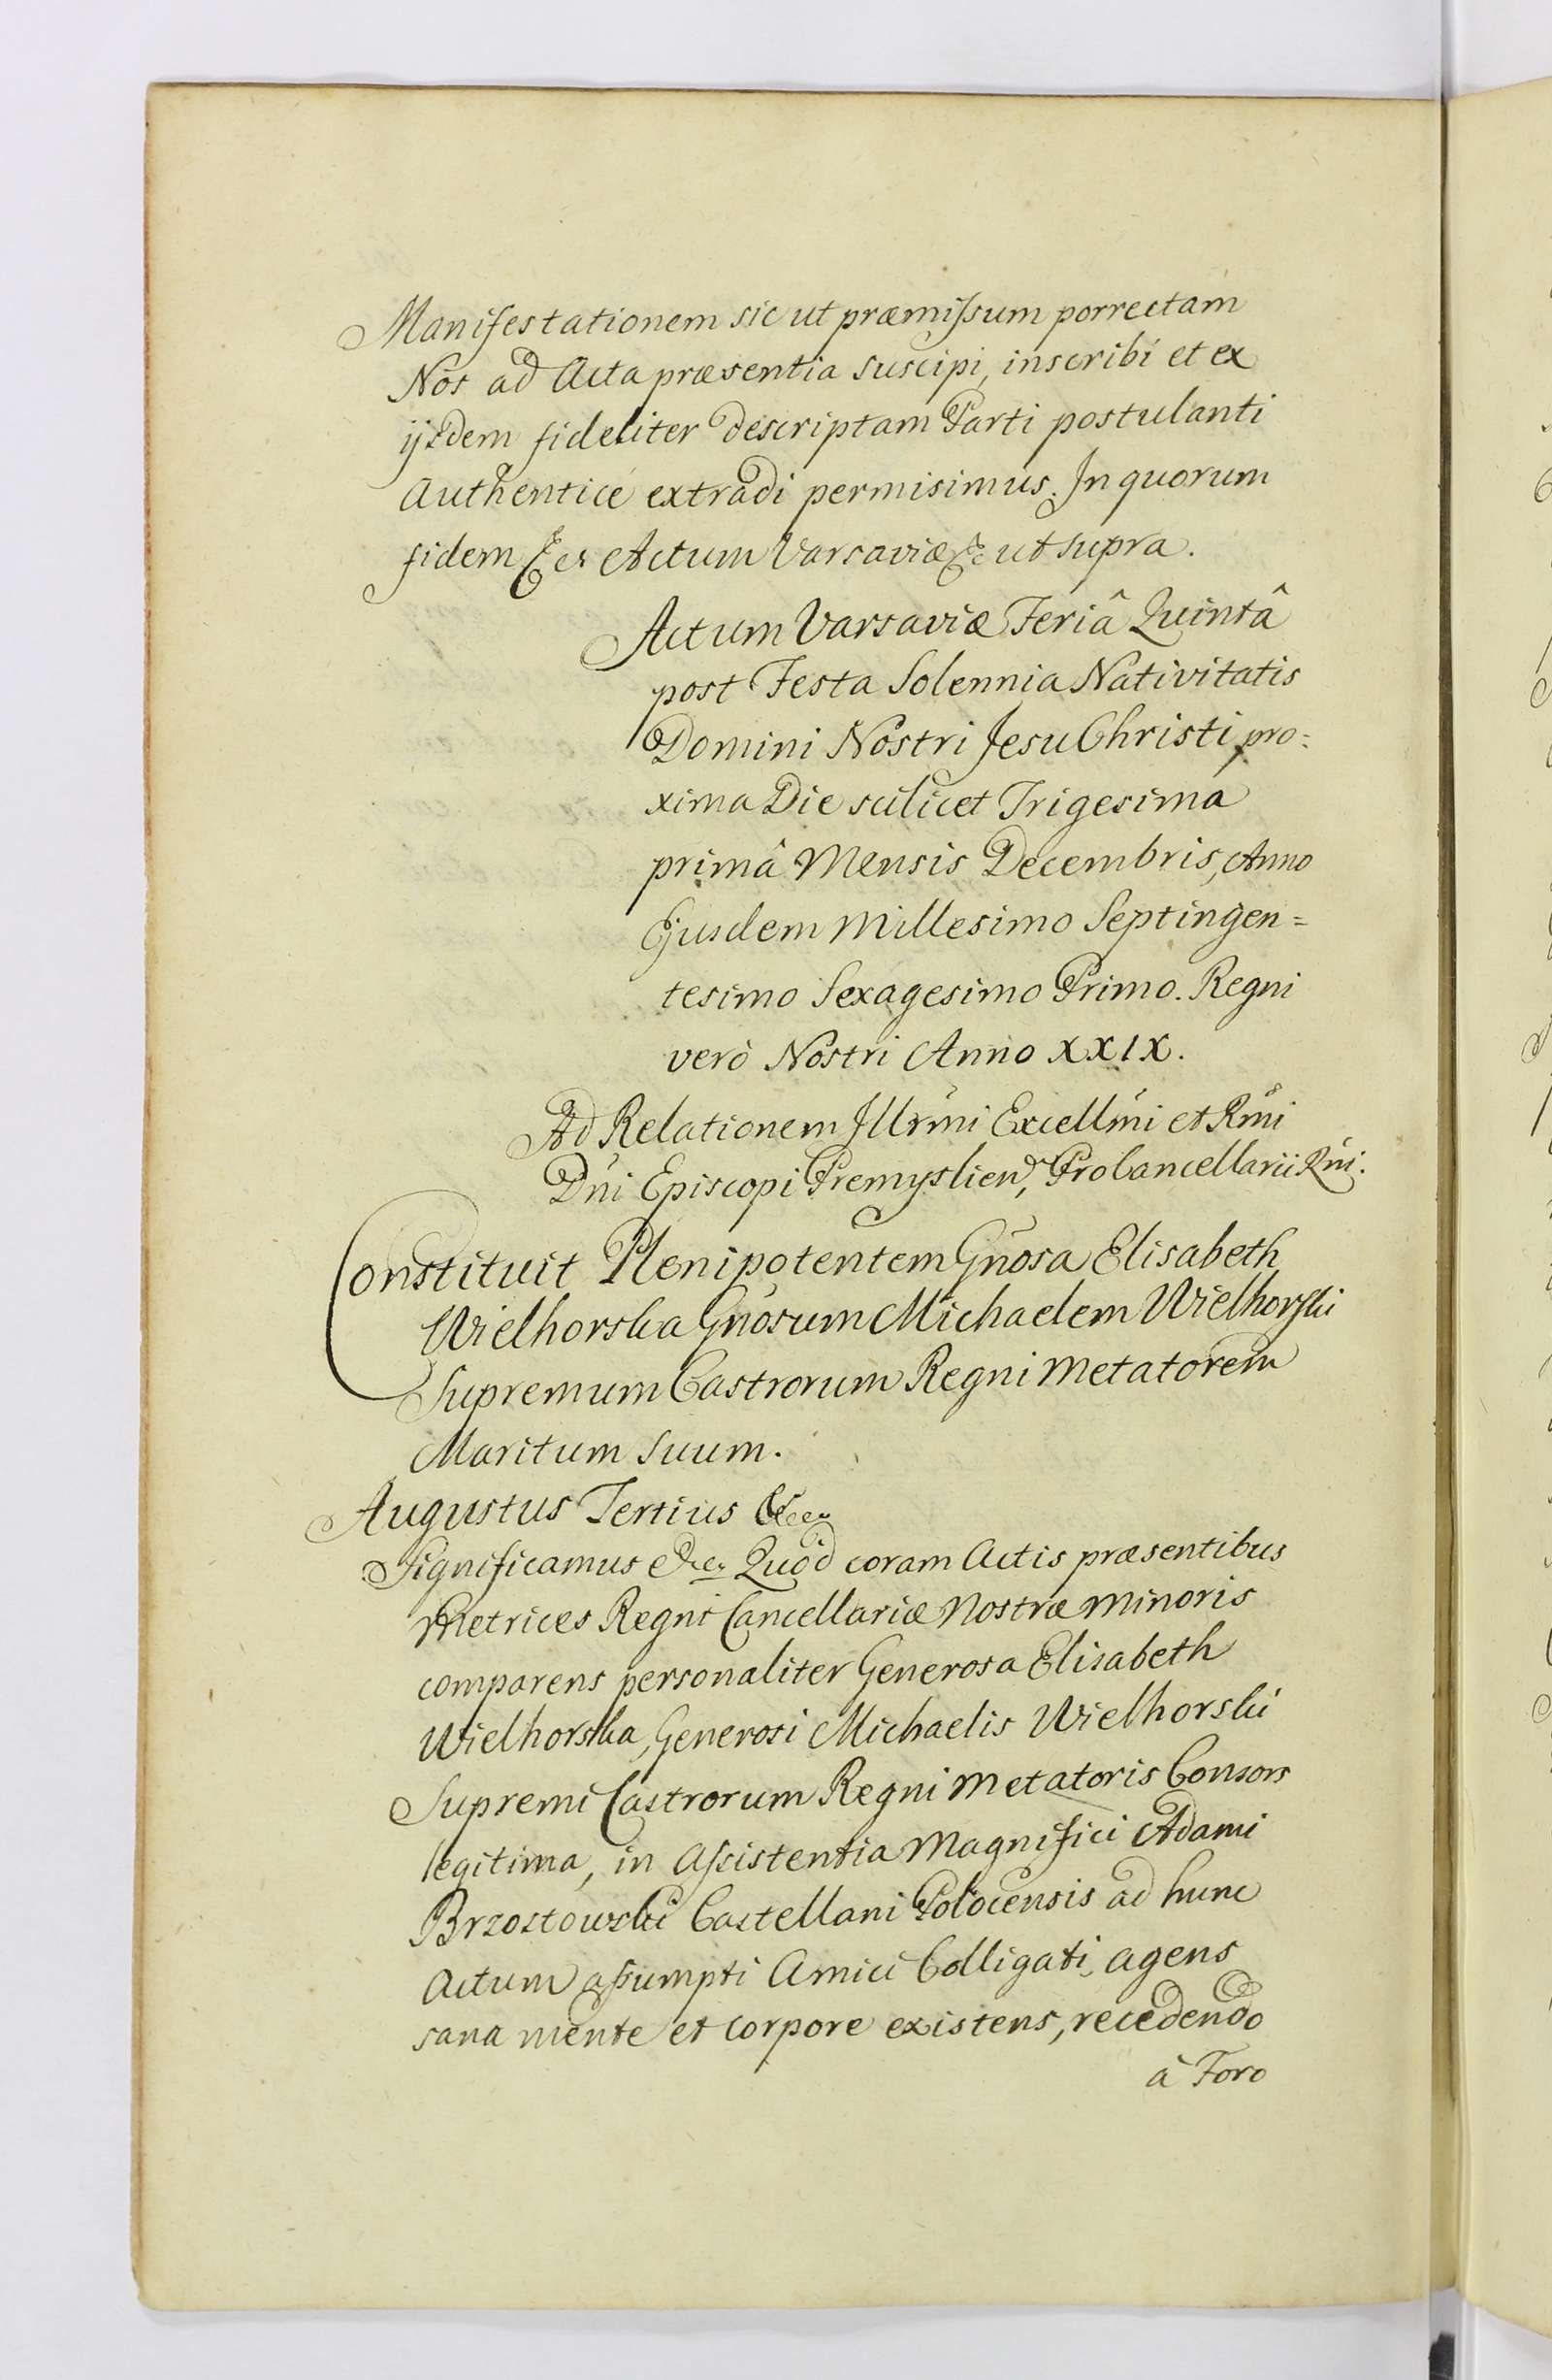 Manifestationem sic ut præmissum porrectam
Nos ad Acta præsentia suscipi, inscribi et ex
ijsdem fideliter descriptam Parti postulanti
Authenticè extradi permisimus. In quorum
fidem &c. Actum Varsaviæ &c ut supra.
Actum Varsaviæ Feriâ Quintâ
post Festa Solennia Nativitatis
Domini Nostri Jesu Christi pro=
xima Die scilicet Trigesimâ
primâ Mensis Decembris, Anno
Ejusdem Millesimo Septingen=
tesimo Sexagesimo Primo. Regni
verò Nostri Anno XXIX.
Ad Relationem Illrmi Excellmi et Rmi
Dni Episcopi Premyslien, ProCancellarii Rni.
Constituit Plenipotentem Gnosa Elisabeth
Wielhorska Gnosum Michaelem Wielhorski
Supremum Castrorum Regni Metatorem
Maritum Suum.
Augustus Tertius &c.
Significamus &c. Quòd coram Actis præsentibus
Metrices Regni Cancellariæ Nostræ Minoris
comparens personaliter Generosa Elisabeth
Wielhorska, Generosi Michaelis Wielhorski
Supremi Castrorum Regni Metatoris Consors
legitima, in Assistentia Magnifici Adami
Brzostowski Castellani Polocensis ad hunc
Actum assumpti Amici Colligati, agens
sana mente et corpore existens, recedendo
à Foro